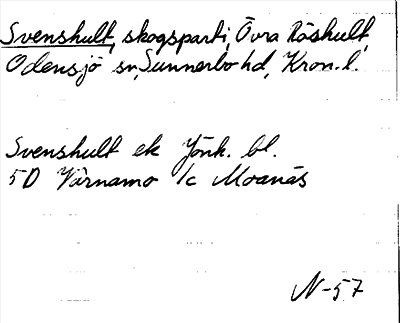 Svenshult, skogsparti, Övra Råshult,
Odensjö sn, Sunnerbo hd, Kron. l.
Svenshult ek Jönk. bl.
5D Värnamo 1c Moanäs
N-57